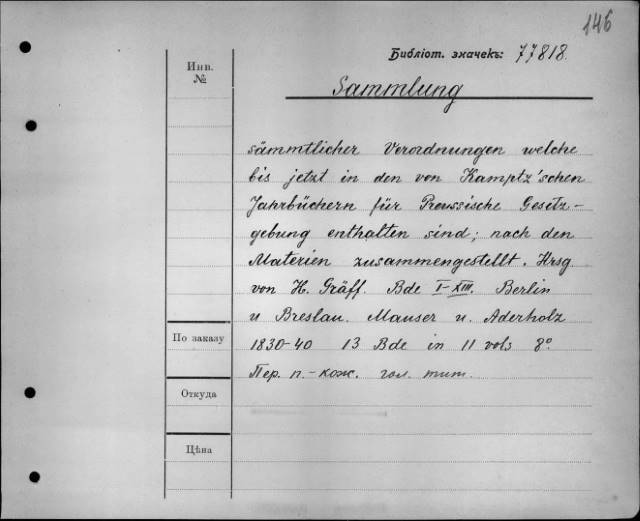 146
Библіот. значекъ: 77818.
Инв.
№
Sammlung
sämmtlicher Verordnungen welche
bis jetzt in den von Kamptz'schen
Jahrbüchern für Preussische Gesetz-
gebung enthalten sind; nach den
Materien zusammengestellt. Hrsg
von H. Gräff. Bde I-XIII. Berlin
u Breslau. Mauser u. Aderholz
По заказу
1830-40 13 Bde in 11 vols 8º
Пер. п.-кож. зол. тит.
Откуда
Цѣна